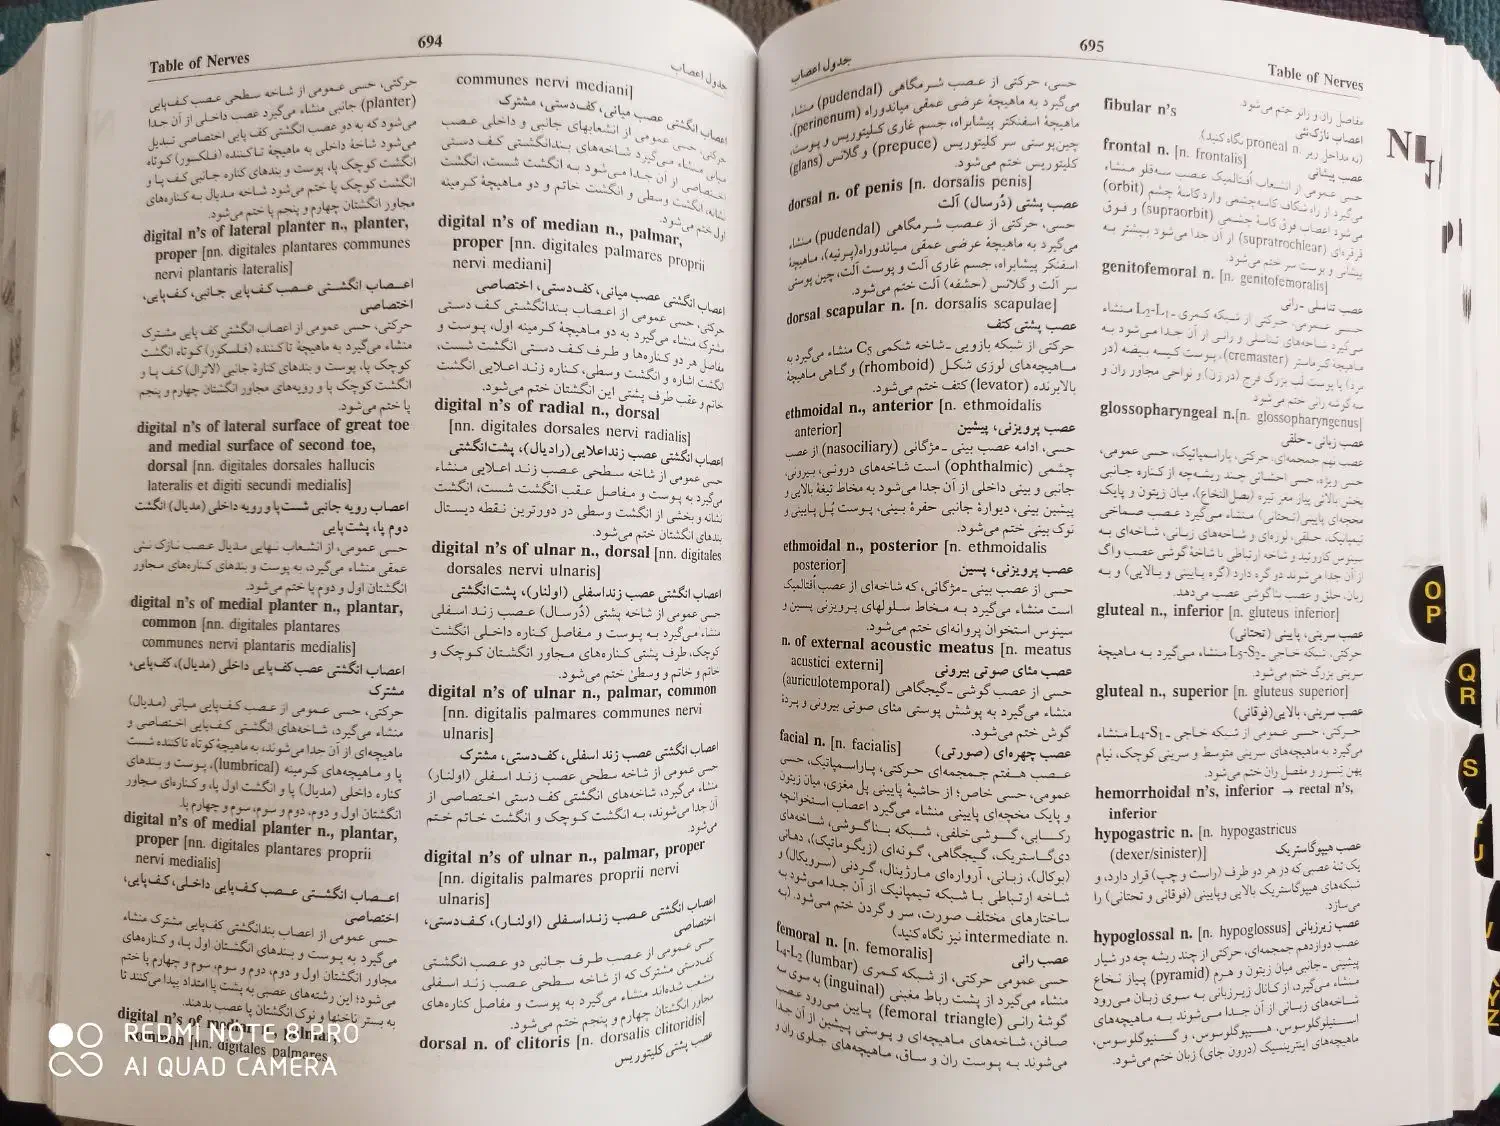 694
Table of Nerves
جدول اعصاب
حرکتی، حسی عمومی از شاخه سطحی عصب کف‌پایی
(planter) جانبی منشاء می‌گیرد عصب داخلی از آن جدا
می‌شود که به دو عصب انگشتی کف پایی اختصاصی تبدیل
می‌شود شاخهٔ داخلی به ماهیچهٔ تاکننده (فلکسور) کوتاه
انگشت کوچک پا، پوست و بندهای کناره جانبی کف پا و
انگشت کوچک پا ختم می‌شود شاخه مدیال به کناره‌های
مجاور انگشتان چهارم و پنجم پا ختم می‌شود.
digital n's of lateral planter n., planter,
proper [nn. digitales plantares communes
nervi plantaris lateralis]
اعصاب انگشتی عصب کف‌پایی جانبی، کف‌پایی،
اختصاصی
حرکتی، حسی عمومی از اعصاب انگشتی کف پایی مشترک
منشاء می‌گیرد به ماهیچهٔ تاکننده (فلکسور) کوتاه انگشت
کوچک پا، پوست و بندهای کنارهٔ جانبی (لاترال) کف پا و
انگشت کوچک پا و رویه‌های مجاور انگشتان چهارم و پنجم
پا ختم می‌شود.
digital n's of lateral surface of great toe
and medial surface of second toe,
dorsal [nn. digitales dorsales hallucis
lateralis et digiti secundi medialis]
اعصاب رویه جانبی شست پا و رویه داخلی (مدیال) انگشت
دوم پا، پشت‌پایی
حسی عمومی، از انشعاب نهایی مدیال عصب نازک نئی
عمقی منشاء می‌گیرد، به پوست و بندهای کناره‌های مجاور
انگشتان اول و دوم پا ختم می‌شود.
digital n's of medial planter n., plantar,
common [nn. digitales plantares
communes nervi plantaris medialis]
اعصاب انگشتی عصب کف‌پایی داخلی (مدیال)، کف‌پایی،
مشترک
حرکتی، حسی عمومی از عصب کف‌پایی میانی (مدیال)
منشاء می‌گیرد، شاخه‌های انگشتی کف‌پایی اختصاصی و
ماهیچه‌ای از آن جدا می‌شوند، به ماهیچهٔ کوتاه تاکننده شست
پا و ماهیچه‌های کرمینه (lumbrical)، پوست و بندهای
کناره داخلی (مدیال) پا و انگشت اول پا، و کناره‌ای مجاور
انگشتان اول و دوم، دوم و سوم، سوم و چهارم پا.
digital n's of medial planter n., plantar,
proper [nn. digitales plantares proprii
nervi medialis]
اعصاب انگشتی عصب کف‌پایی داخلی، کف‌پایی،
اختصاصی
حسی عمومی از اعصاب بندانگشتی کف‌پایی مشترک منشاء
می‌گیرد به پوست و بندهای انگشتان اول پا، و کناره‌های
مجاور انگشتان اول و دوم، دوم و سوم، سوم و چهارم پا ختم
می‌شود؛ این رشته‌های عصبی به پشت پا امتداد پیدا می‌کنند تا
به بستر ناخنها و نوک انگشتان پا عصب بدهند.
digital n's of median n., palmar,
common [nn. digitales palmares
communes nervi mediani]
اعصاب انگشتی عصب میانی، کف‌دستی، مشترک
حرکتی، حسی عمومی از انشعابهای جانبی و داخلی عصب
میانی منشاء می‌گیرد شاخه‌های بندانگشتی کف دستی
اختصاصی از آن جدا می‌شود به انگشت شست، انگشت
نشانه، انگشت وسطی و انگشت خاتم و دو ماهیچهٔ کرمینه
اول ختم می‌شود.
digital n's of median n., palmar,
proper [nn. digitales palmares proprii
nervi mediani]
اعصاب انگشتی عصب میانی، کف‌دستی، اختصاصی
حرکتی، حسی عمومی از اعصاب بندانگشتی کف دستی
مشترک منشاء می‌گیرد به دو ماهیچهٔ کرمینه اول، پوست و
مفاصل هر دو کناره‌ها و طرف کف دستی انگشت شست،
انگشت اشاره و انگشت وسطی، کناره زند اعلایی انگشت
خاتم و عقب طرف پشتی این انگشتان ختم می‌شود.
digital n's of radial n., dorsal
[nn. digitales dorsales nervi radialis]
اعصاب انگشتی عصب زنداعلایی (رادیال)، پشت‌انگشتی
حسی عمومی از شاخه سطحی عصب زند اعلایی منشاء
می‌گیرد به پوست و مفاصل عقب انگشت شست، انگشت
نشانه و بخشی از انگشت وسطی در دورترین نقطه دیستال
بندهای انگشتان ختم می‌شود.
digital n's of ulnar n., dorsal [nn. digitales
dorsales nervi ulnaris]
اعصاب انگشتی عصب زنداسفلی (اولنار)، پشت‌انگشتی
حسی عمومی از شاخه پشتی (دُرسال) عصب زند اسفلی
منشاء می‌گیرد به پوست و مفاصل کناره داخلی انگشت
کوچک، طرف پشتی کناره‌های مجاور انگشتان کوچک و
خاتم و خاتم و وسطیٰ ختم می‌شود.
digital n's of ulnar n., palmar, common
[nn. digitalis palmares communes nervi
ulnaris]
اعصاب انگشتی عصب زند اسفلی، کف‌دستی، مشترک
حسی عمومی از شاخه سطحی عصب زند اسفلی (اولنار)
منشاء می‌گیرد، شاخه‌های انگشتی کف دستی اختصاصی از
آن جدا می‌شوند، به انگشت کوچک و انگشت خاتم ختم
می‌شود.
digital n's of ulnar n., palmar, proper
[nn. digitalis palmares proprii nervi
ulnaris]
اعصاب انگشتی عصب زنداسفلی (اولنار)، کف‌دستی،
اختصاصی
حسی عمومی از عصب طرف جانبی دو عصب انگشتی
کف‌دستی مشترک که از شاخه سطحی عصب زند اسفلی
منشعب شده‌اند منشاء می‌گیرد به پوست و مفاصل کناره‌های
مجاور انگشتان چهارم و پنجم ختم می‌شود.
dorsal n. of clitoris [n. dorsalis clitoridis]
عصب پشتی کلیتوریس
695
جدول اعصاب
Table of Nerves
حسی، حرکتی از عصب شرمگاهی (pudendal) منشاء
می‌گیرد به ماهیچهٔ عرضی عمقی میاندوراه (perinenum)،
ماهیچهٔ اسفنکتر پیشابراه، جسم غاری کلیتوریس و پوست،
چین‌پوستی سر کلیتوریس (prepuce) و گلانس (glans)
کلیتوریس ختم می‌شود.
dorsal n. of penis [n. dorsalis penis]
عصب پشتی (دُرسال) آلت
حسی، حرکتی از عصب شرمگاهی (pudendal) منشاء
می‌گیرد به ماهیچهٔ عرضی عمقی میاندوراه (پرنیه)، ماهیچهٔ
اسفنکر پیشابراه، جسم غاری آلت و پوست آلت، چین پوستی
سر آلت و گلانس (حشفه) آلت ختم می‌شود.
dorsal scapular n. [n. dorsalis scapulae]
عصب پشتی کتف
حرکتی از شبکه بازویی ـ شاخه شکمی C5 منشاء می‌گیرد به
ماهیچه‌های لوزی شکل (rhomboid) و گاهی ماهیچهٔ
بالابرنده (levator) کتف ختم می‌شود.
ethmoidal n., anterior [n. ethmoidalis
anterior] عصب پرویزنی، پیشین
حسی، ادامه عصب بینی ـ مژگانی (nasociliary) از عصب
چشمی (ophthalmic) است شاخه‌های درونی، بیرونی،
جانبی و بینی داخلی از آن جدا می‌شود به مخاط تیغهٔ بالایی و
پیشین بینی، دیوارهٔ جانبی حفرهٔ بینی، پوست پُل پایینی و
نوک بینی ختم می‌شود.
ethmoidal n., posterior [n. ethmoidalis
posterior] عصب پرویزنی، پسین
حسی از عصب بینی ـ مژگانی، که شاخه‌ای از عصب اُفتالمیک
است منشاء می‌گیرد به مخاط سلولهای پرویزنی پسین و
سینوس استخوان پروانه‌ای ختم می‌شود.
n. of external acoustic meatus [n. meatus
acustici externi] عصب مئای صوتی بیرونی
حسی از عصب گوشی ـ گیجگاهی (auriculotemporal)
منشاء می‌گیرد به پوشش پوستی مئای صوتی بیرونی و پردهٔ
گوش ختم می‌شود.
facial n. [n. facialis] عصب چهره‌ای (صورتی)
عصب هفتم جمجمه‌ای حرکتی، پاراسمپاتیک، حسی
عمومی، حسی خاص؛ از حاشیهٔ پایینی پل مغزی، میان زیتون
و پایک مخچه‌ای پایینی منشاء می‌گیرد اعصاب استخوانچه
رکابی، گوشی خلفی، شبکه بناگوشی، شاخه‌های
دی‌گاستریک، گیجگاهی، گونه‌ای (زیگوماتیک)، دهانی
(بوکال)، زبانی، آرواره‌ای مارژینال، گردنی (سرویکال) و
شاخه ارتباطی با شبکه تیمپانیک از آن جدا می‌شود به
ساختارهای مختلف صورت، سر و گردن ختم می‌شود. (به
intermediate n. نیز نگاه کنید)
femoral n. [n. femoralis] عصب رانی
حسی عمومی حرکتی، از شبکه کمری (lumbar) L4-L2
منشاء می‌گیرد از پشت رباط مغبنی (inguinal) به سوی سه
گوشهٔ رانی (femoral triangle) پایین می‌رود عصب
صافن، شاخه‌های ماهیچه‌ای و پوستی پیشین از آن جدا
می‌شوند به پوست ران و ساق، ماهیچه‌های جلوی ران و
مفاصل ران و زانو ختم می‌شود.
fibular n's اعصاب نازک‌نئی
(به مداخل زیر proneal n. نگاه کنید).
frontal n. [n. frontalis]
عصب پیشانی
حسی عمومی از انشعاب اُفتالمیک عصب سه‌قلو منشاء
می‌گیرد از راه شکاف کاسه‌چشمی وارد کاسهٔ چشم (orbit)
می‌شود اعصاب فوق کاسهٔ چشمی (supraorbit) و فوق
قرقره‌ای (supratrochlear) از آن جدا می‌شود بیشتر به
پیشانی و پوست سر ختم می‌شود.
genitofemoral n. [n. genitofemoralis]
عصب تناسلی ـ رانی
حسی عمومی، حرکتی از شبکه کمری ـ L2-L1 منشاء
می‌گیرد شاخه‌های تناسلی و رانی از آن جدا می‌شود به
ماهیچه کرماستر (cremaster)، پوست کیسه بیضه (در
مرد) یا پوست لب بزرگ فرج (در زن) و نواحی مجاور ران و
سه‌گوشه رانی ختم می‌شود
glossopharyngeal n.[n. glossopharyngenus]
عصب زبانی ـ حلقی
عصب نهم جمجمه‌ای، حرکتی، پاراسمپاتیک، حسی عمومی،
حسی ویژه، حسی احشائی چند ریشه‌چه از کناره جانبی
بخش بالائی پیاز مغز تیره (بصل‌النخاع)، میان زیتون و پایک
مخچه‌ای پایینی (تحتانی) منشاء می‌گیرد عصب صماخی
تیمپانیک، حلقی، لوزه‌ای و شاخه‌های زبانی، شاخه‌ای به
سینوس کاروتید و شاخه ارتباطی با شاخهٔ گوشی عصب واگ
از آن جدا می‌شوند دو گره دارد (گره پایینی و بالایی) و به
زبان، حلق و عصب بناگوشی عصب می‌دهد.
gluteal n., inferior [n. gluteus inferior]
عصب سرینی، پایینی (تحتانی)
حرکتی، شبکه خاجی ـ L5-S2 منشاء می‌گیرد به ماهیچهٔ
سرینی بزرگ ختم می‌شود.
gluteal n., superior [n. gluteus superior]
عصب سرینی، بالایی(فوقانی)
حرکتی، حسی عمومی از شبکه خاجی ـ L4-S1 منشاء
می‌گیرد به ماهیچه‌های سرینی متوسط و سرینی کوچک، نیام
پهن تِنسور و مفصل ران ختم می‌شود.
hemorrhoidal n's, inferior → rectal n's,
inferior
hypogastric n. [n. hypogastricus
(dexer/sinister)] عصب هیپوگاستریک
یک تنهٔ عصبی که در هر دو طرف (راست و چپ) قرار دارد، و
شبکه‌های هیپوگاستریک بالایی و پایینی (فوقانی و تحتانی) را
می‌سازد.
hypoglossal n. [n. hypoglossus] عصب زیرزبانی
عصب دوازدهم جمجمه‌ای، حرکتی، از چند ریشه چه در شیار
پیشینی ـ جانبی میان زیتون و هرم (pyramid) پیاز نخاع
منشاء می‌گیرد، از کانال زیرزبانی به سوی زبان می‌رود
شاخه‌های زبانی از آن جدا می‌شوند به ماهیچه‌های
استیلوگلوسوس، هیپوگلوسوس، و گِنیوگلوسوس،
ماهیچه‌های اینترینسیک (درون جای) زبان ختم می‌شود.
N
O
P
Q
R
S
T
U
Y
Z
REDMI NOTE 8 PRO
AI QUAD CAMERA